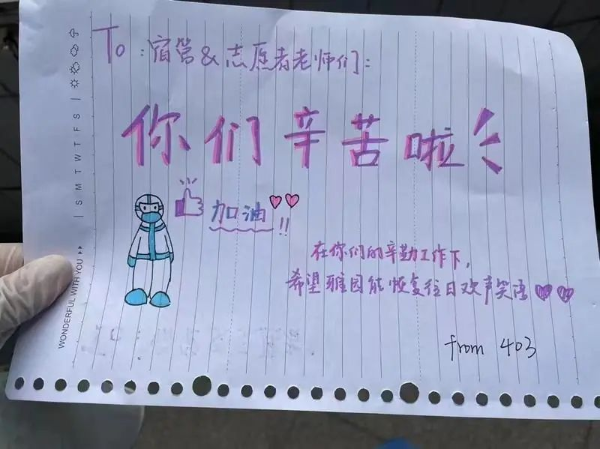 To：宿管&志愿者老师们：
你们辛苦啦
加油!!
在你们的辛勤工作下，
希望雅园能恢复往日欢声笑语
from 403
S M T W T F S
WONDERFUL WITH YOU